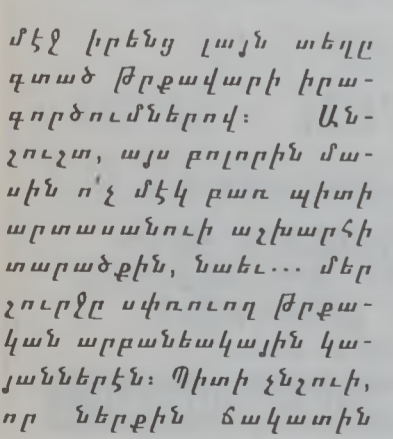 մէջ իրենց լայն տեղը
գտած Թրքավարի իրա-
գործումներով։ Ան-
շուշտ, այս բոլորին մա-
սին ո՛չ մէկ բառ պիտի
արտասանուի աշխարհի
տարածքին, նաեւ... մեր
շուրջը սփռուող Թրքա-
կան արբանեակային կա-
յաններէն։ Պիտի չնշուի,
որ ներքին ճակատին